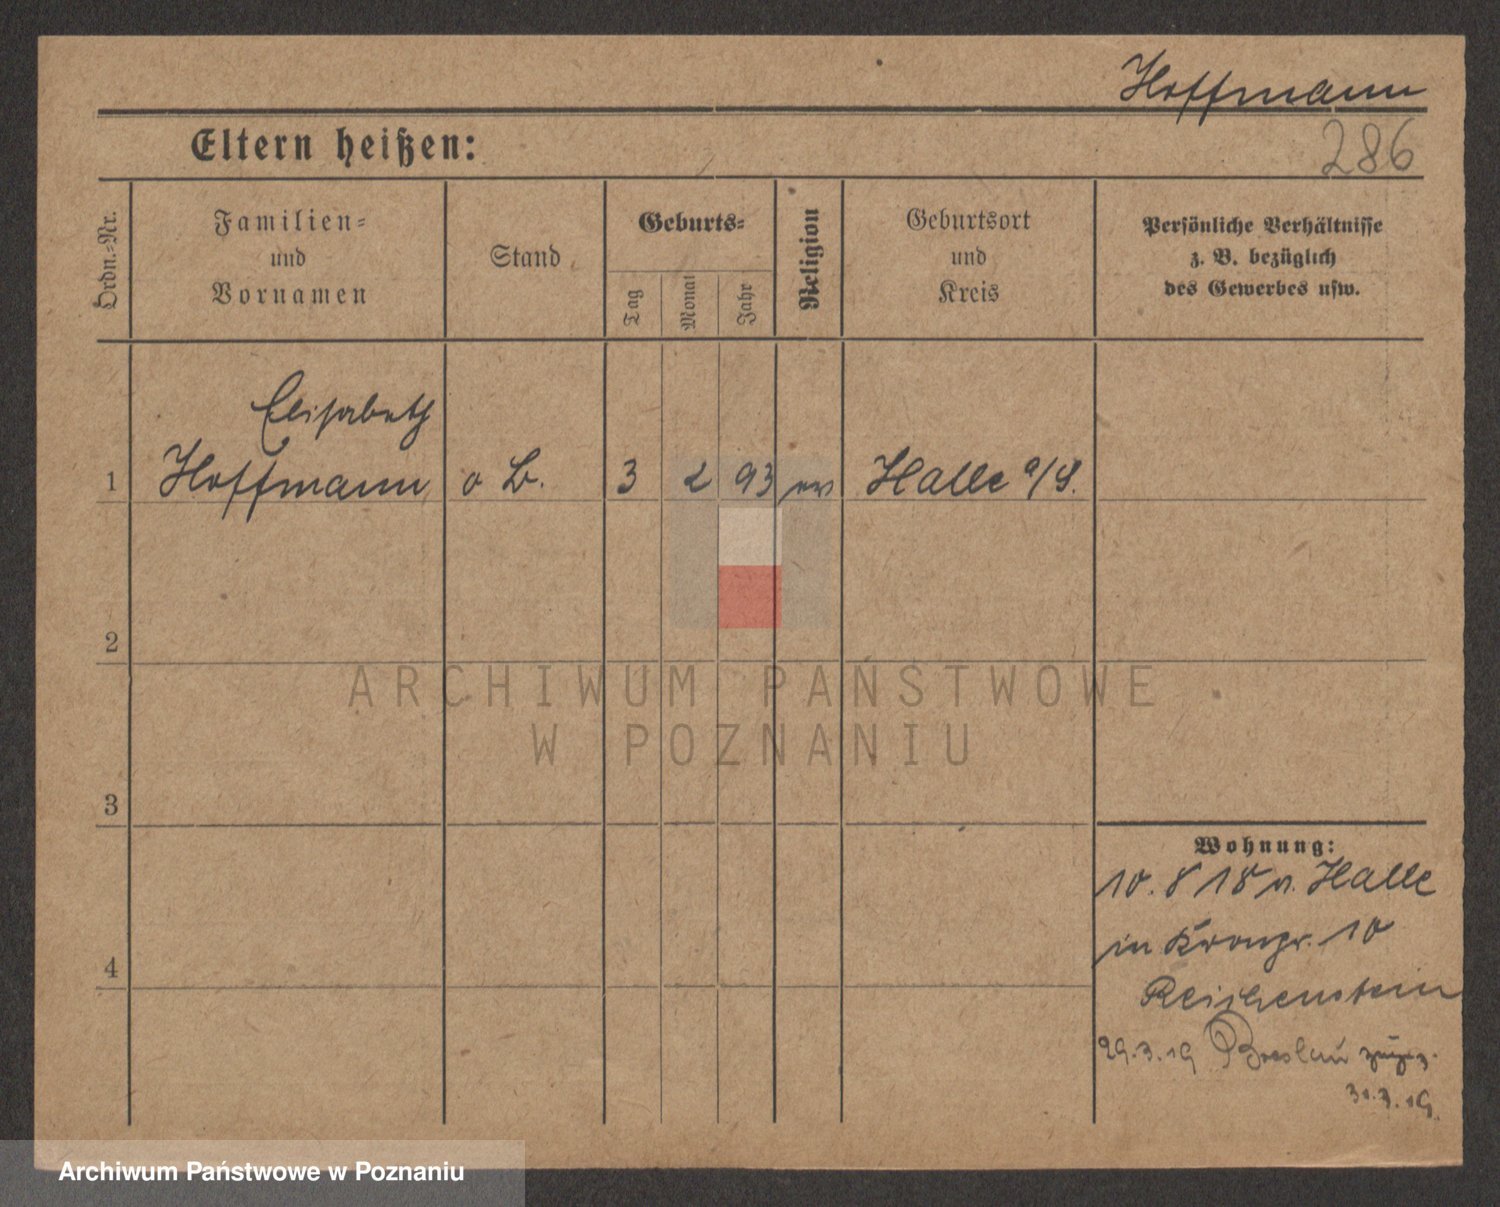 Hoffmann
286
Eltern heißen:
Ordn.-Nr.
Familien-
und
Vornamen
Stand
Geburts-
Tag
Monat
Jahr
Religion
Geburtsort
und
Kreis
Persönliche Verhältnisse
z. B. bezüglich
des Gewerbes usw.
Elisabeth
1 Hoffmann o B. 3 2 93 ev Halle a/S.
2
3
4
Wohnung:
10. 8 18 v. Halle
in Kronpr. 10
Reichenstein
29.3.19 Breslau
31.3.19.
ARCHIWUM PAŃSTWOWE
W POZNANIU
Archiwum Państwowe w Poznaniu